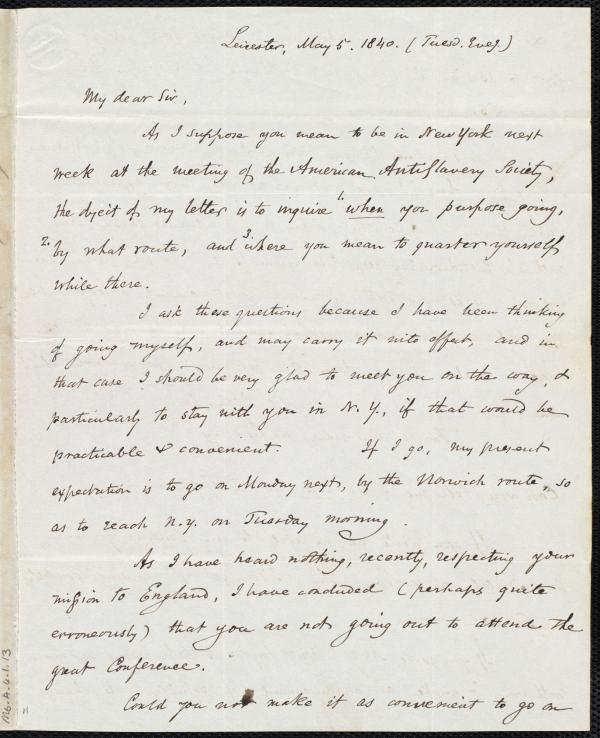 Leicester, May 5. 1840. (Tuesd. Eveg.)
My dear Sir,
As I suppose you mean to be in New York next
week at the meeting of the American AntiSlavery Society,
the object of my letter is to inquire 1. when you purpose going,
2. by what route, and 3. where you mean to quarter yourself
while there.
I ask these questions because I have been thinking
of going myself, and may carry it into effect, and in
that case I should be very glad to meet you on the way, &
particularly to stay with you in N.Y., if that would be
practicable & convenient. If I go, my present
expectation is to go on Monday next, by the Norwich route, so
as to reach N.Y. on Tuesday morning.
As I have heard nothing, recently, respecting your
mission to England, I have concluded (perhaps quite
erroneously) that you are not going out to attend the
great Conference.
Could you not make it as convenient to go on
Ms.A.4.1.13